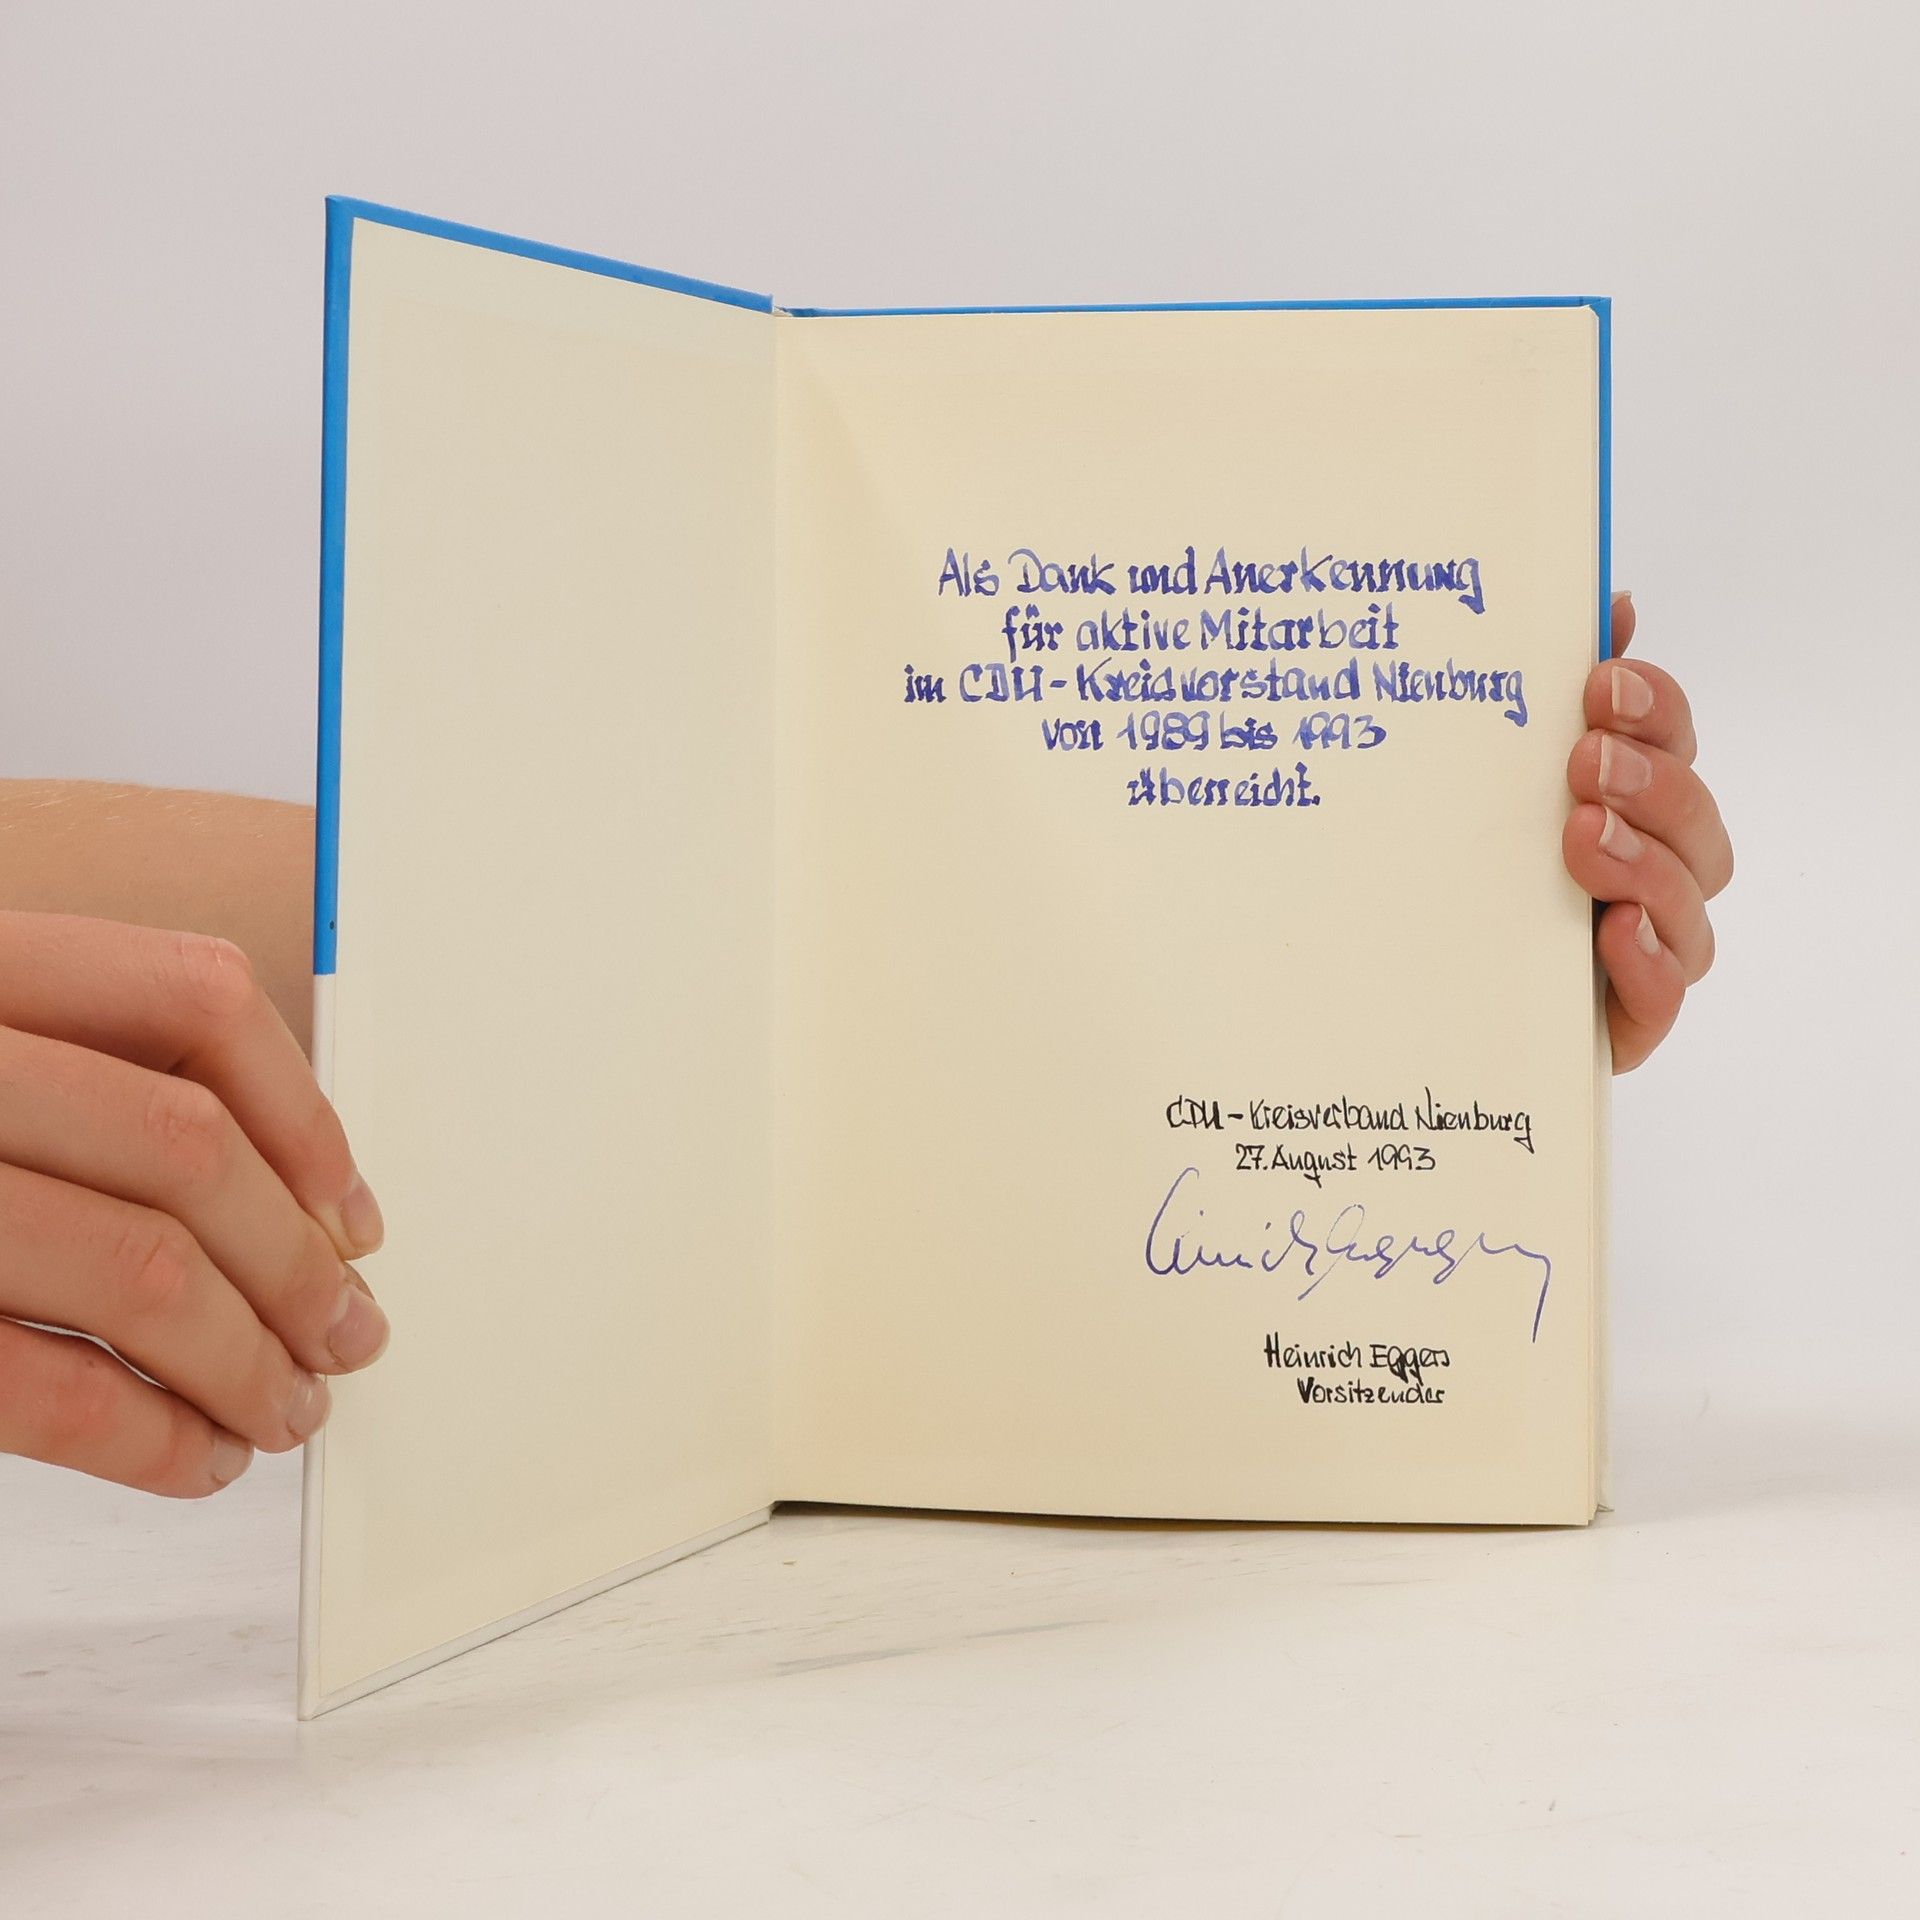 Als Dank und Anerkennung
für aktive Mitarbeit
im CDU-Kreisvorstand Nienburg
von 1989 bis 1993
überreicht.
CDU-Kreisverband Nienburg
27. August 1993
Heinrich Eggers
Vorsitzender